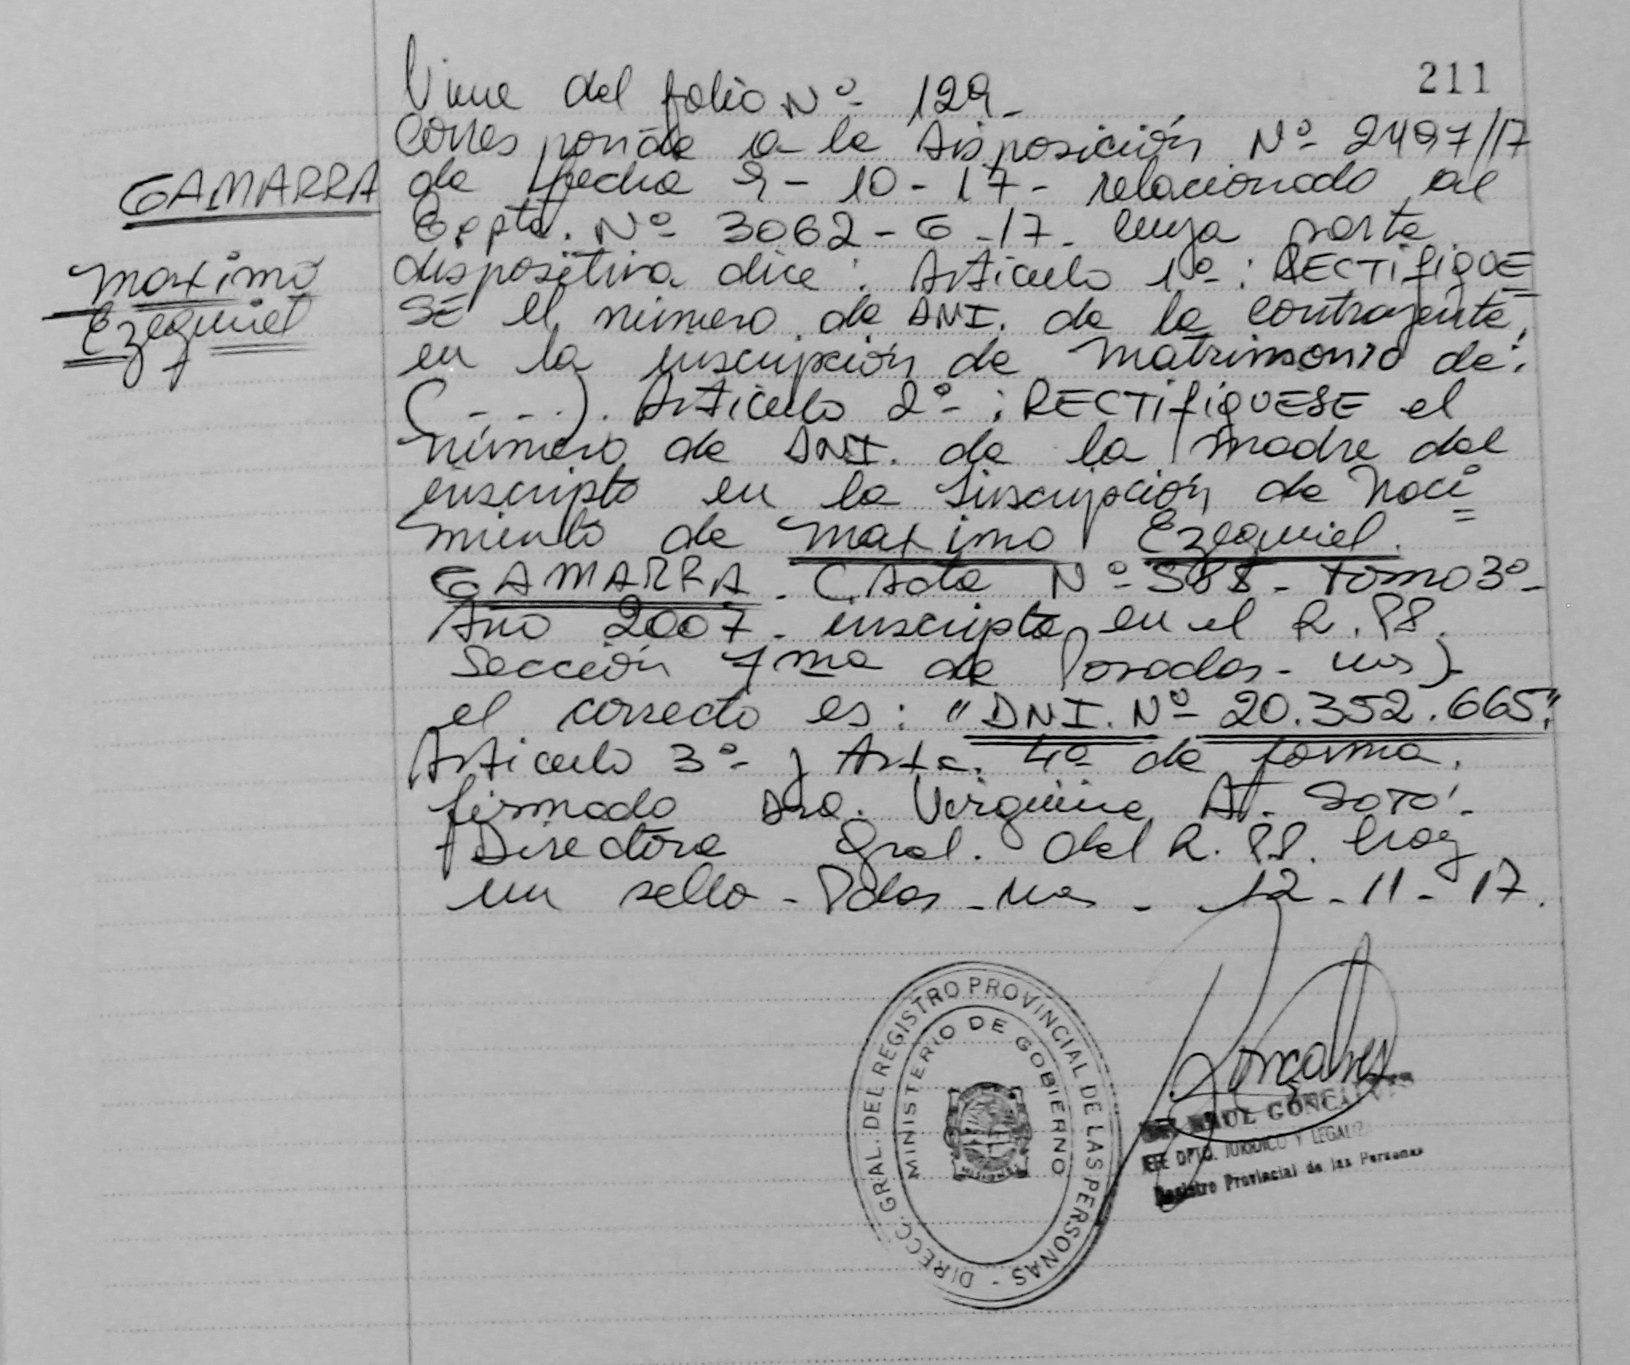 211
Viene del folio Nº 129-
Corresponde a la Disposición Nº 2497/17
GAMARRA
de fecha 9-10-17- relacionado al
Expte. Nº 3062-G-17- cuya parte
Maximo
Ezequiel
dispositiva dice: Artículo 1º: RECTIFIQUE
SE el número de DNI. de la contrayente,
en la inscripción de Matrimonio de:
(---). Artículo 2º-: RECTIFIQUESE el
número de DNI. de la madre del
inscripto en la Inscripción de Naci=
miento de Maximo Ezequiel
GAMARRA- (Acta Nº 588- Tomo 3º-
Año 2007- inscripta en el R.PP.
Sección 7ma de Posadas- Mns)
el correcto es: "DNI. Nº 20.352.665".
Articulo 3º- y Artc. 4º de forma.
firmado Dra. Virginia A. SOTO-
Directora Gral. del R.PP. Hay
un sello- Pdas- Mns - 12-11-17.
DIRECC. GRAL. DEL REGISTRO PROVINCIAL DE LAS PERSONAS -
MINISTERIO DE GOBIERNO
MISIONES
RAUL GONCALVES
JEFE DPTO. JURIDICO Y LEGALIZ
Registro Provincial de las Personas